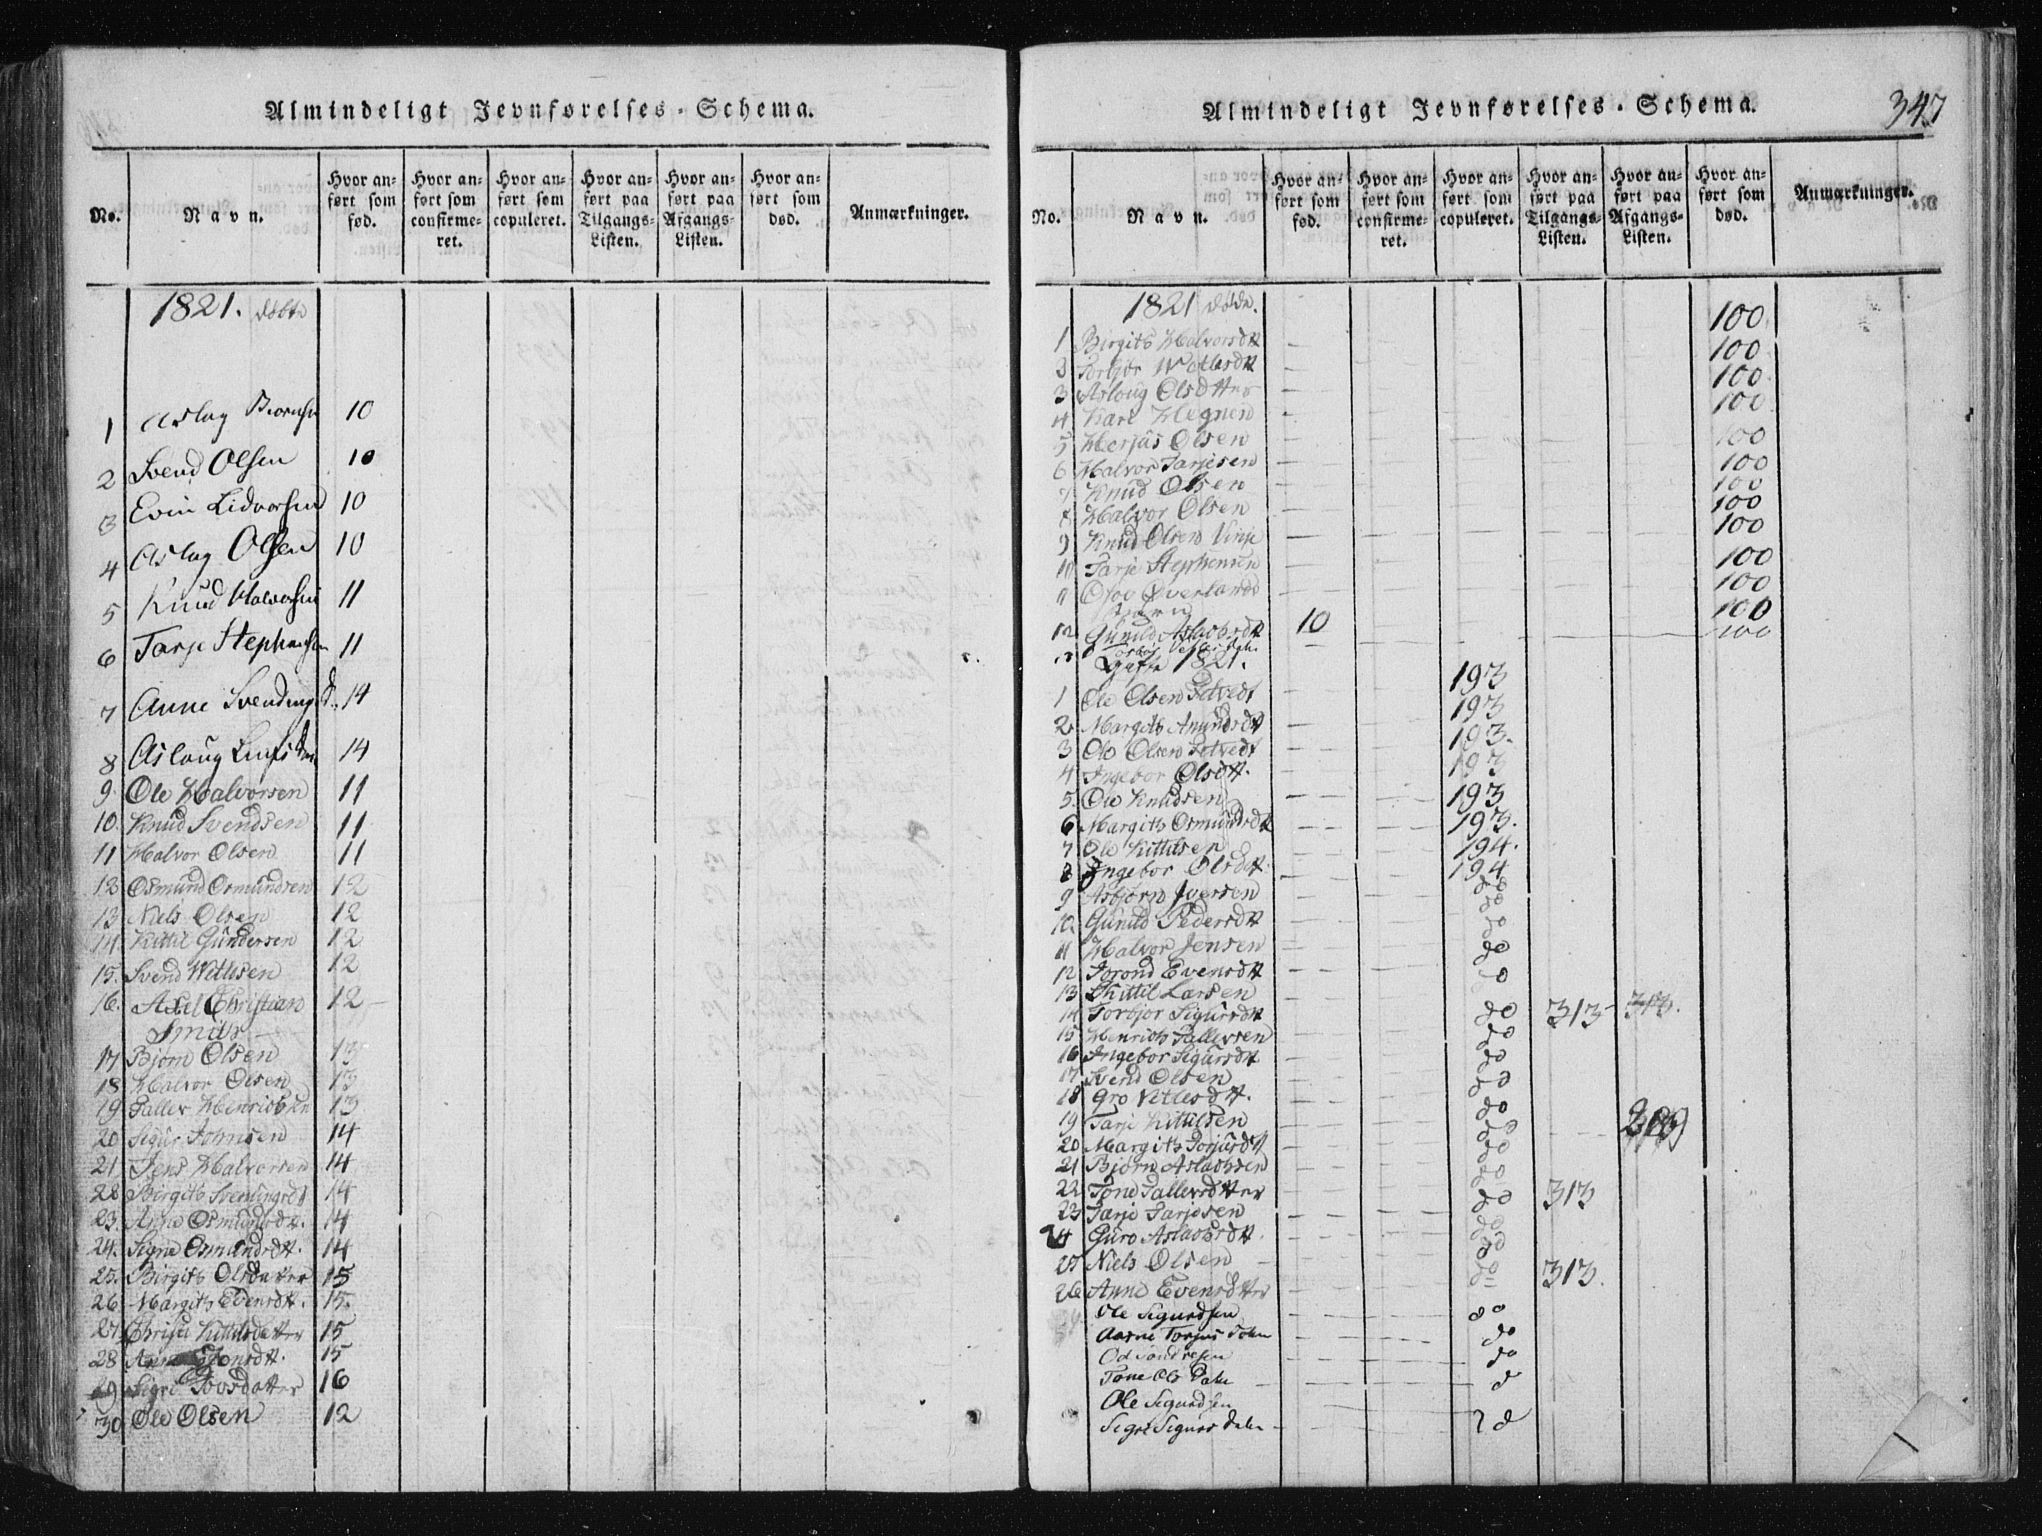 Almindeligt Jevnførelses-Schema.
No. Navn. Hvor anført som fød. Hvor anført som confirmeret. Hvor anført som copuleret. Hvor anført paa Tilgangs-Listen. Hvor anført paa Afgangs-Listen. Hvor anført som død. Anmærkninger.
1821. døbte
1 Aslag Biørnsen 10
2 Svend Olsen 10
3 Evin Lidvorsen 10
4 Aslag Olsen 10
5 Knud Halvorsen 11
6 Tarje Stephensen 11
7 Anne Svendings d. 14
8 Aslaug 14
9. Ole Halvorsen 11
10. Knud Svendsen 11
11 Halvor Olsen 11
12 Osmund Osmundsen 12
13 Niels Olsen 12
14. Kittil Gundersen 12
15. Svend Wetlesen 12
16. Axel Christian 12
Smith
17 Bjørn Olsen 13
18 Halvor Olsen 13
19 Taller Henrichsen 13
20 Sigur Johnsen 14
21 Jens Halvorsen 14
22 Birgith Svenungsdt 14
23. Anne Osmundsdtt. 14
24. Signe Osmundsdtt. 14
25. Birgith Olsdatter 15
26 Margith Evensdtt. 15.
27 Christi Kittilsdatter 15
28 15
29 Sigri Tovsdatter 16
30 Ole Olsen 12
Almindeligt Jevnførelses-Schema. 347
No. Navn. Hvor anført som fød. Hvor anført som confirmeret. Hvor anført som copuleret. Hvor anført paa Tilgangs-Listen. Hvor anført paa Afgangs-Listen. Hvor anført som død. Anmærkninger.
1821 døde.
1 Birgith Halvorsdtt 100
2 Torbjør Wetlesdtt 100
3 Asloug Olsdatter 100
4 Kari Hegnen 100
5 Herjus Olsen 100
6 Halvor Tarjesen 100
7 Knud Olsen 100
8 Halvor Olsen 100
9 Knud Olsen Vinje 100
10 Tarje Stephensen 100
11 Olav Øverlands 100
Barn
12 Gunild Aslachsdtt 10 100
100
Gifte 1821.
1 Ole Olsen Totvedt 193
2 Margith Amundsdtt 193
3 Ole Olsen Totvedt 193.
4 Ingebor Olsdtt. 193
5. Ole Knudsen 193
6 Margith Osmundsdtt 193.
7 Ole Kittilsen 194.
8 Ingebor Olsdatt. 194
9 Asbjørn Iversen do
10. Gunild Pedersdtt do
11 Halvor Jensen do
12 Jorond Evensdtt do
13 Kittil Larsen do
14 Torbjor Sigursdtt do 313 313.
15 Henrich Tallevsen do
16 Ingebor Sigursdtt do
17 Svend Olsen do
18 Gro Vetlesdtt. do
19 Tarje Kittilsen do
20 Margith Torjusdtt do
21 Bjørn Aslachsen do
22 Tone Tallevsdatter do 313
23 Tarje Tarjesen do
24 Guro Aslachsdtt. do
25 Niels Olsen do
26 Anne Evensdatter do 313.
Ole Sigurdsen do
Aasne Torjus Dater do
Od Sondresen do
Tone Ols Date d
Ole Sigurdsen
Sigri Sigurs Dater d